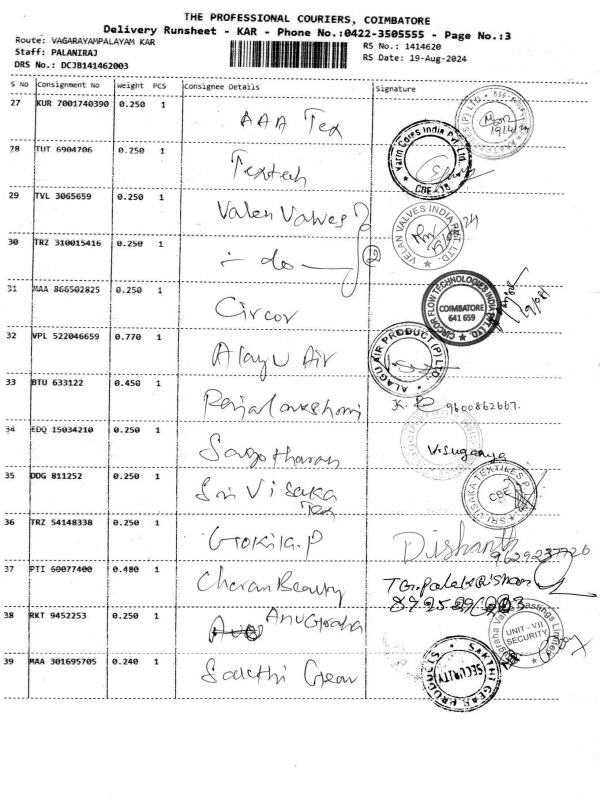 THE PROFESSIONAL COURIERS, COIMBATORE
Delivery Runsheet - KAR - Phone No.:0422-3505555 - Page No.:3
Route: VAGARAYAMPALAYAM KAR
RS No.: 1414620
Staff: PALANIRAJ
RS Date: 19-Aug-2024
DRS No.: DCJB141462003
S No Consignment No Weight PCS Consignee Details Signature
27 KUR 7001740390 0.250 1 AAA Tex
28 TUT 6904706 0.250 1 Textech Yarn Cores India Pvt. Ltd. CBE-18
29 TVL 3065659 0.250 1 Valen Valves VELAN VALVES INDIA PVT. LTD.
30 TRZ 310015416 0.250 1 - do - 12
31 MAA 866502825 0.250 1 Circor CIRCOR FLOW TECHNOLOGIES INDIA PVT. LTD. COIMBATORE 641 659
32 VPL 522046659 0.770 1 Alagu Air ALAGU AIR PRODUCT (P) LTD.
33 BTU 633122 0.450 1 Rajalakshmi K. 9600862667.
34 EDQ 15034210 0.250 1 V. Suganya
35 DDG 811252 0.250 1 Sri Visaka Tex SRI VISAKA TEXTILES P. CBE
36 TRZ 54148338 0.250 1 Gokila.P Dishanth 9629237726
37 PTI 60077400 0.480 1 Charan Beauty
38 RKT 9452253 0.250 1 Anugraha UNIT - VII SECURITY
39 MAA 301695705 0.240 1 Sakthi Gear SAKTHI GEAR PRODUCTS SECURITY